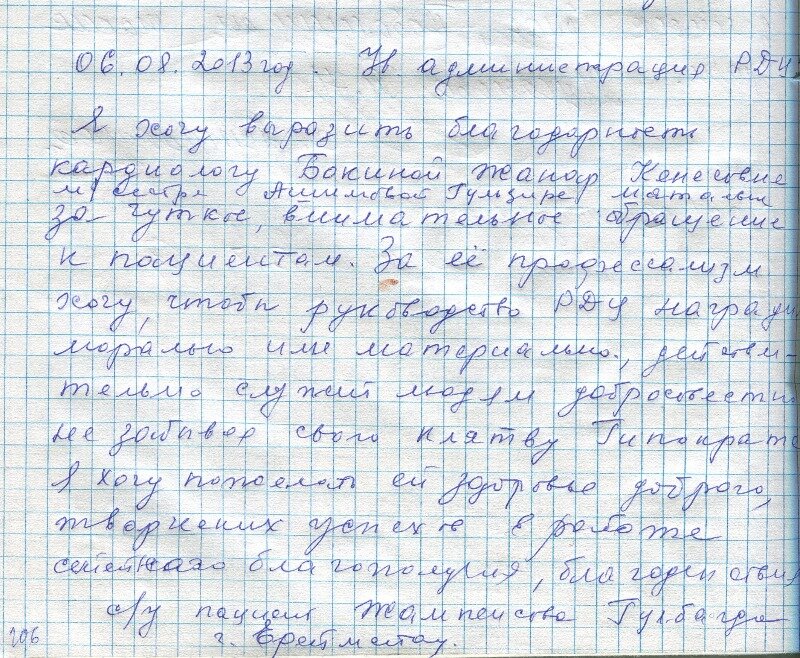 06.08.2013 год. Ув администрация РДЦ
Я хочу выразить благодарность
кардиологу Бакиной Жанар Кенесовне
м/сестре Ашимовой Гульзире
за чуткое, внимательное обращение
к пациентам. За её профессализм
хочу, чтобы руководство РДЦ награди
морально или материально., действи-
тельно служит людям добросовестно
не забывая свого клятву Гипократа
Я хочу пожелать ей здоровье доброго,
творческих успехов в работе
семейного благополучия, благоденствия
с/у пациент Гулбагда
г. Ерейментау.
206